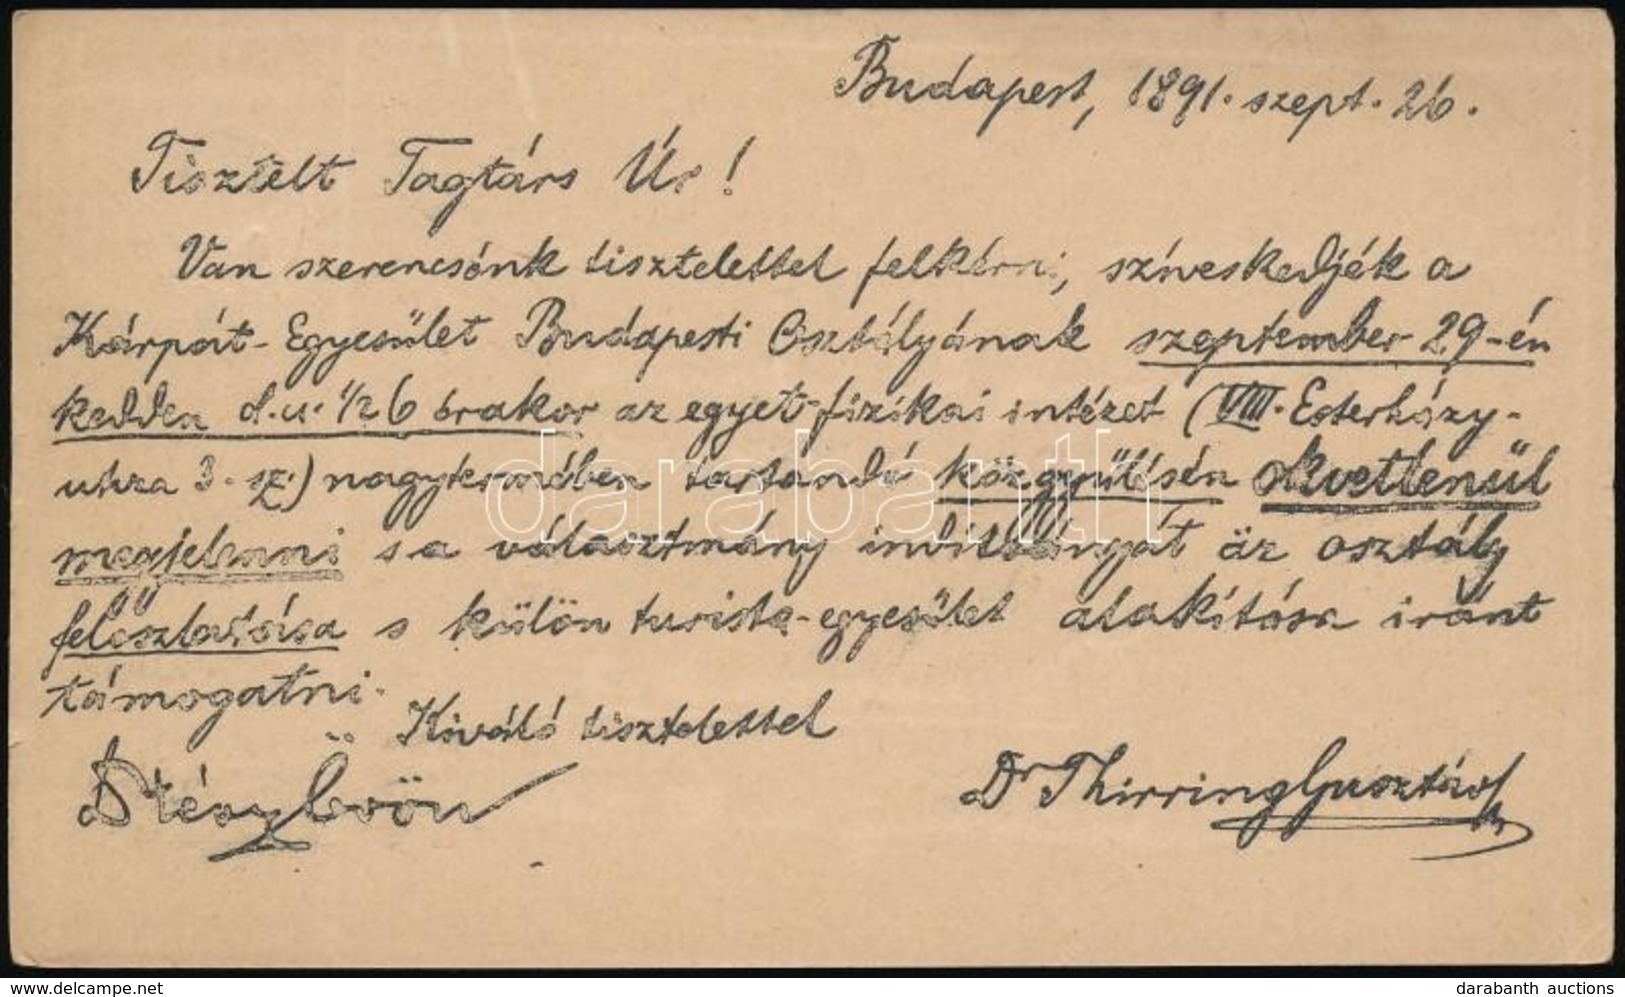 Budapest, 1891. szept. 26.
Tisztelt Tagtárs Úr!
Van szerencsénk tisztelettel felkérni, szíveskedjék a
Kárpát-Egyesület Budapesti Osztályának szeptember 29-én
kedden d.u. 1/2 6 órakor az egyet. fizikai intézet (VIII. Esterházy-
utcza 3. sz.) nagytermében tartandó közgyűlésén okvetlenül
megjelenni s a választmány indítványát az osztály
feloszlatása s külön turista-egyesület alakítása iránt
támogatni.
Kiváló tisztelettel
Dr Thirring Gusztáv
darabanth
delcampe.net
darabanth auctions